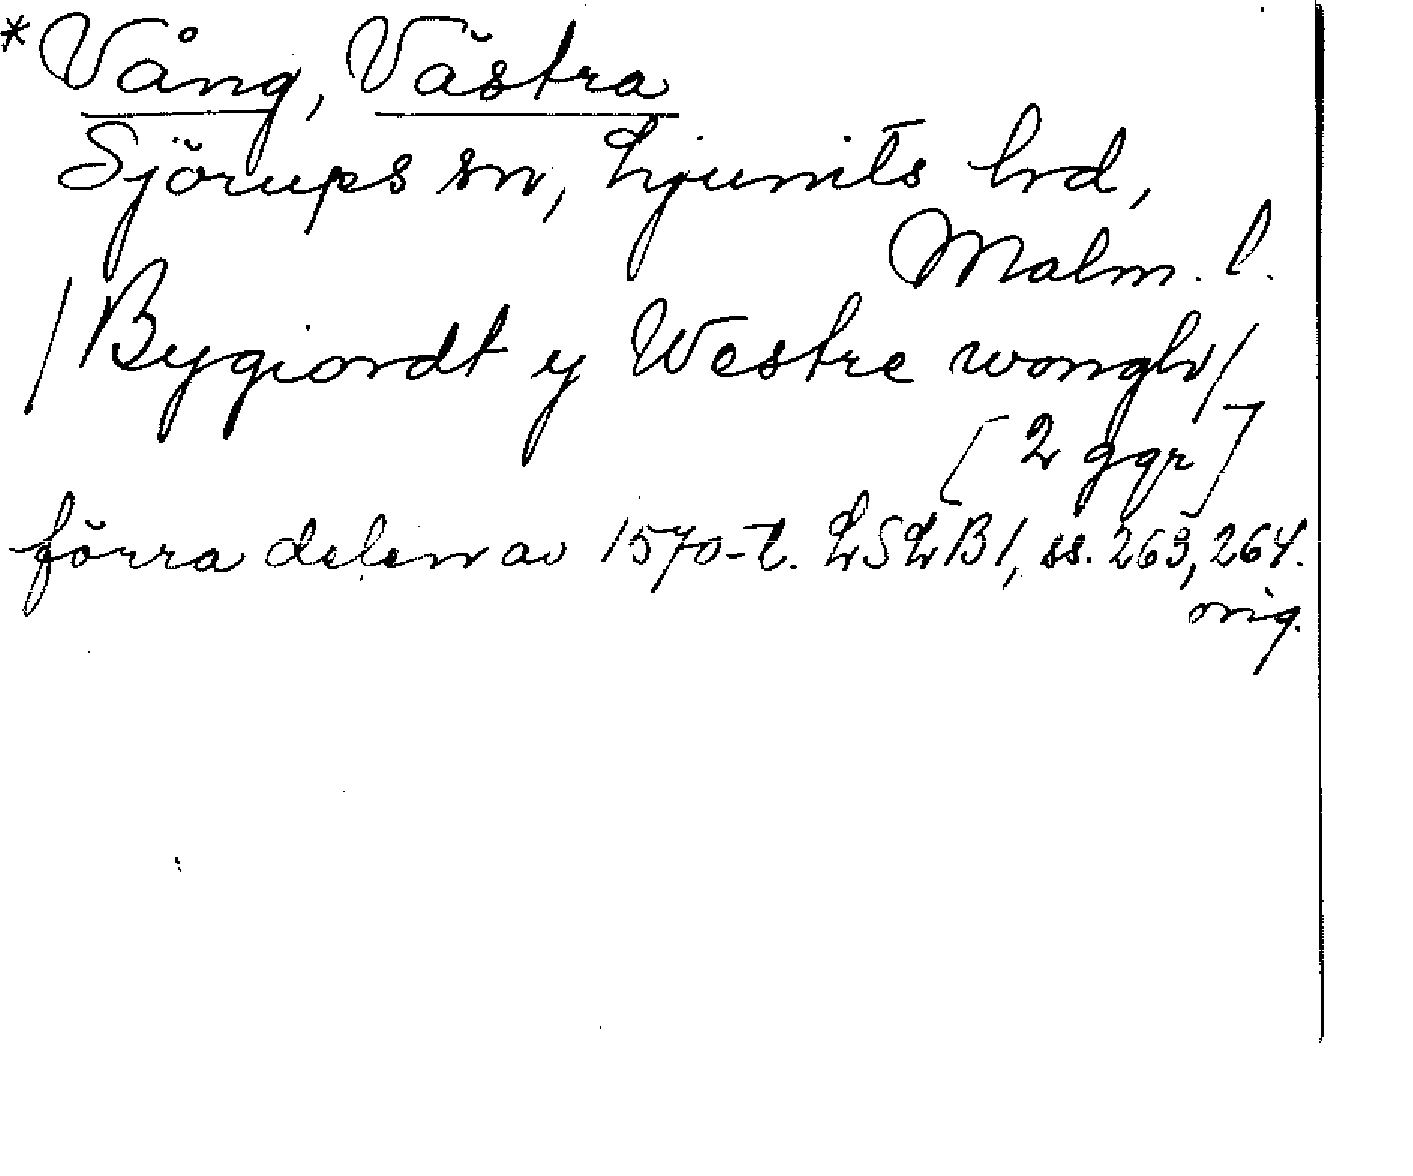 *Vång, Västra
Sjörups sn, Ljunits hd,
Malm. l.
/Bygiordt y Westre wongh/
[2 ggr]
förra delen av 1570-t. LSLB1, ss. 263, 264.
orig.